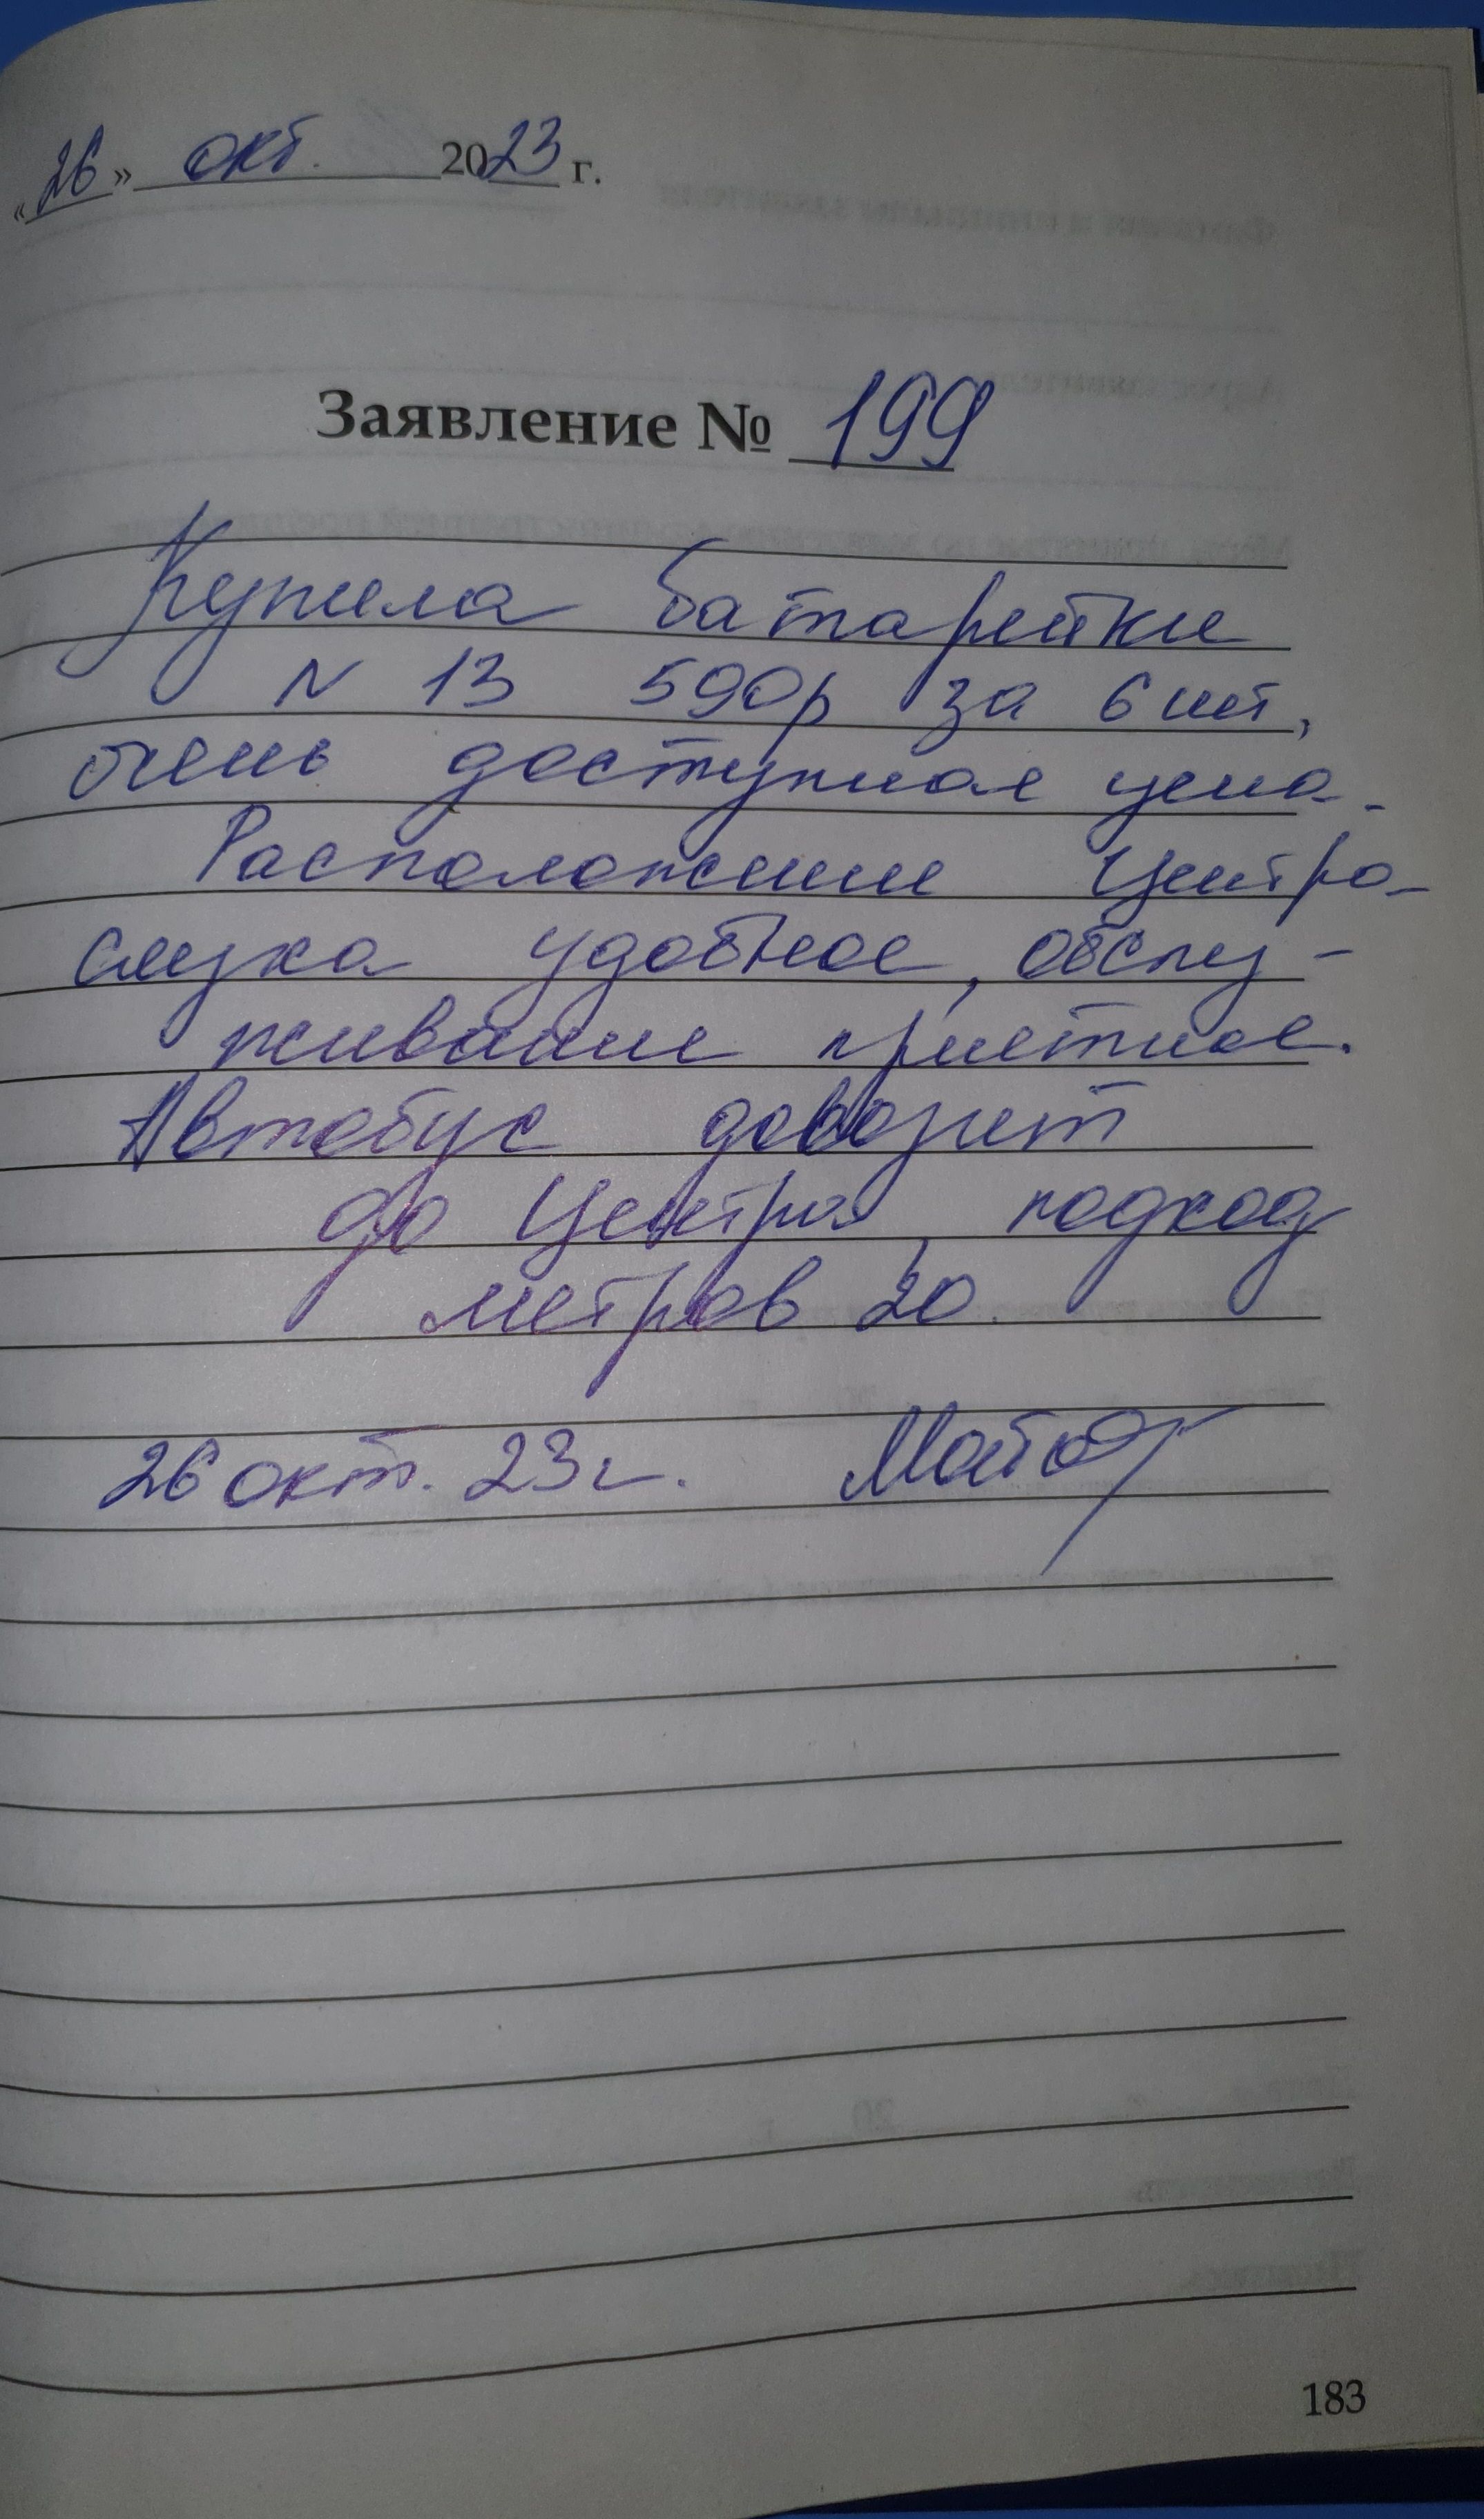 «26» окт. 2023 г.
Заявление № 199
Купила батарейки
N 13 590р за 6 шт,
очень доступная цена.
Расположение Центра
слуха удобное, обслу-
живание приятное.
Автобус довозит
до Центра, подход
метров 20.
26 окт. 23г.
183